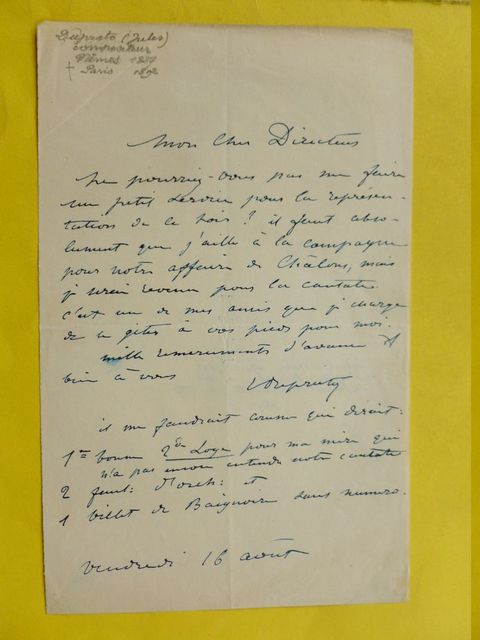 Duprato (Jules)
compositeur
Nîmes 1827
† Paris 1892
Mon Cher Directeur
Ne pourriez-vous pas me faire
un petit service pour la représen-
tation de ce soir ? il faut abso-
lument que j'aille à la campagne
pour notre affaire de Châlons, mais
je serai revenu pour la cantate.
c'est un de mes amis que je charge
de se jeter à vos pieds pour moi.
mille remerciements d'avance et
bien à vous
JDuprato
il me faudrait comme qui dirait :
1 bonne 2de Loge pour ma mère qui
n'a pas encore entendu notre cantate
2 faut: d'orch: et
1 billet de Baignoire sans numéro.
Vendredi 16 août